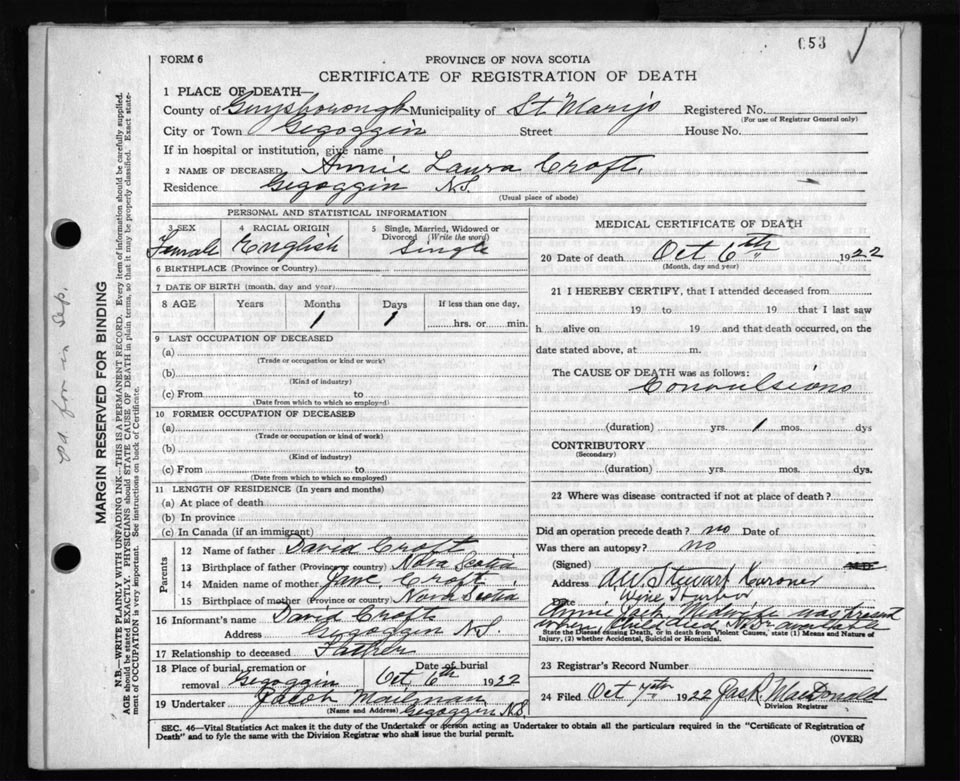 053
FORM 6
PROVINCE OF NOVA SCOTIA
CERTIFICATE OF REGISTRATION OF DEATH
1 PLACE OF DEATH—
County of Guysborough Municipality of St Marys Registered No.
(For use of Registrar General only)
City or Town Gegoggin Street House No.
If in hospital or institution, give name
2 NAME OF DECEASED Annie Laura Croft.
Residence Gegoggin N.S.
(Usual place of abode)
PERSONAL AND STATISTICAL INFORMATION
3 SEX Female
4 RACIAL ORIGIN English
5 Single, Married, Widowed or Divorced (Write the word) Single
6 BIRTHPLACE (Province or Country)
7 DATE OF BIRTH (month, day and year)
8 AGE Years Months Days If less than one day,
1 1 hrs. or min.
9 LAST OCCUPATION OF DECEASED
(a)
(Trade or occupation or kind of work)
(b)
(Kind of industry)
(c) From to
(Date from which to which so employed)
10 FORMER OCCUPATION OF DECEASED
(a)
(Trade or occupation or kind of work)
(b)
(Kind of industry)
(c) From to
(Date from which to which so employed)
11 LENGTH OF RESIDENCE (In years and months)
(a) At place of death
(b) In province
(c) In Canada (if an immigrant)
Parents
12 Name of father David Croft
13 Birthplace of father (Province or country) Nova Scotia
14 Maiden name of mother Jane Croft
15 Birthplace of mother (Province or country) Nova Scotia
16 Informant's name David Croft
Address Gegoggin N.S.
17 Relationship to deceased Father
18 Place of burial, cremation or removal Gegoggin Date of burial Oct 6th 1922
19 Undertaker Jacob Mailman
(Name and Address) Gegoggin N.S.
MEDICAL CERTIFICATE OF DEATH
20 Date of death Oct 6th 1922
(Month, day and year)
21 I HEREBY CERTIFY, that I attended deceased from
19 to 19 that I last saw
h alive on 19 and that death occurred, on the
date stated above, at m.
The CAUSE OF DEATH was as follows:
Convulsions
(duration) yrs. 1 mos. dys
CONTRIBUTORY
(Secondary)
(duration) yrs. mos. dys.
22 Where was disease contracted if not at place of death?
Did an operation precede death? no Date of
Was there an autopsy? no
(Signed)
Address Stewart
Date Wine Harbor
Annie Jack Midwife was present
when child died No Dr available
State the Disease causing Death, or in death from Violent Causes, state (1) Means and Nature of
Injury, (2) whether Accidental, Suicidal or Homicidal.
23 Registrar's Record Number
24 Filed Oct 7th 1922 Jas R. MacDonald
Division Registrar
SEC. 46—Vital Statistics Act makes it the duty of the Undertaker or person acting as Undertaker to obtain all the particulars required in the "Certificate of Registration of
Death" and to fyle the same with the Division Registrar who shall issue the burial permit.
(OVER)
MARGIN RESERVED FOR BINDING
N.B.—WRITE PLAINLY WITH UNFADING INK—THIS IS A PERMANENT RECORD. Every item of information should be carefully supplied.
AGE should be stated EXACTLY. PHYSICIANS should STATE CAUSE OF DEATH in plain terms, so that it may be properly classified. Exact state-
ment of OCCUPATION is very important. See instructions on back of Certificate.
in Sep.